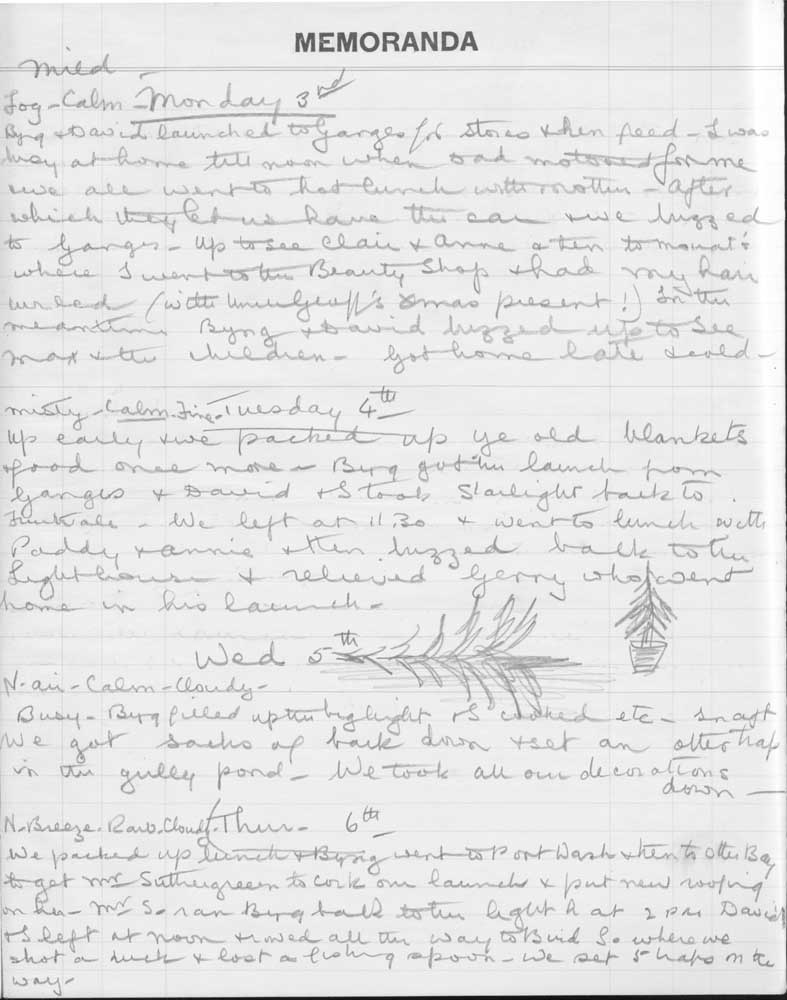 MEMORANDA
Mild -
Fog - Calm - Monday 3rd
Byng & David launched to Ganges for stores & hen feed - I was
busy at home till noon when Dad motored for me
& we all went to hot lunch with mother - After
which they let us have the car & we buzzed
to Ganges - Up to see Clair & Anne & then to Mouat's
where I went to the Beauty Shop & had my hair
(with Uncle Geoff's Xmas present!) In the
meantime Byng & David buzzed up to see
Max & the children - Got home late & cold -
Misty - Calm. Fine - Tuesday 4th
Up early & we packed up ye old blankets
& food once more - Byng got the launch from
Ganges & David & I took Starlight back to
- We left at 11.30 & went to lunch with
Paddy & Annie & then buzzed back to the
Lighthouse & relieved Gerry who went
home in his launch -
Wed 5th
N-air - Calm - Cloudy -
Busy - Byng filled up the big light & I cooked etc - In aft
We got sacks of bark down & set an otter trap
in the gully pond - We took all our decorations
down -
N. Breeze. Raw. Cloudy. Thur - 6th
We packed up lunch & Byng went to Port Wash & then to Otter Bay
to get Mr to cork our launch & put new roofing
on her - Mr S. ran Byng back to the light h at 2 PM David
& I left at noon & rowed all the way to Bird So where we
shot a duck & lost a fishing spoon - We set 5 traps on the
way -